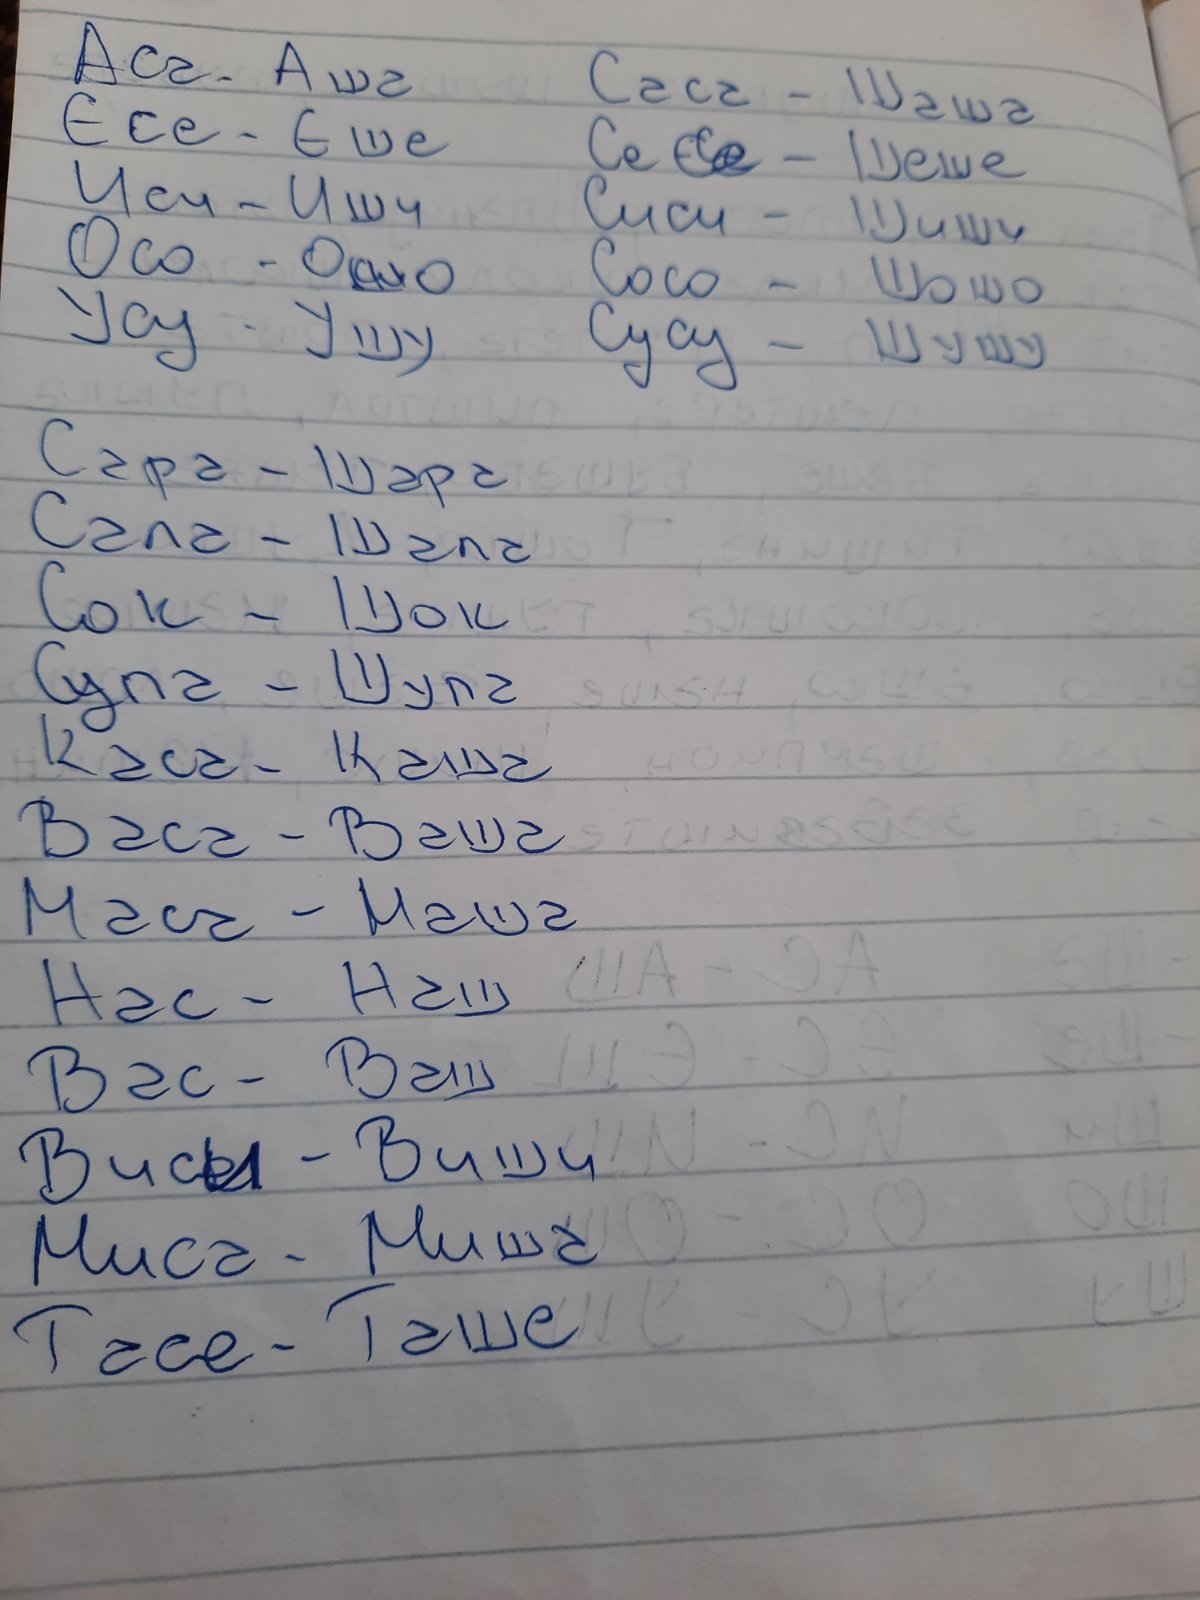 Аса - Аша Саса - Шаша
Есе - Еше Сесе - Шеше
Иси - Иши Сиси - Шиши
Осо - Ошо Сосо - Шошо
Усу - Ушу Сусу - Шушу
Сара - Шара
Сапа - Шапа
Сок - Шок
Супа - Шупа
Каса - Каша
Васа - Ваша
Маса - Маша
Нас - Наш
Вас - Ваш
Виси - Виши
Миса - Миша
Тасе - Таше